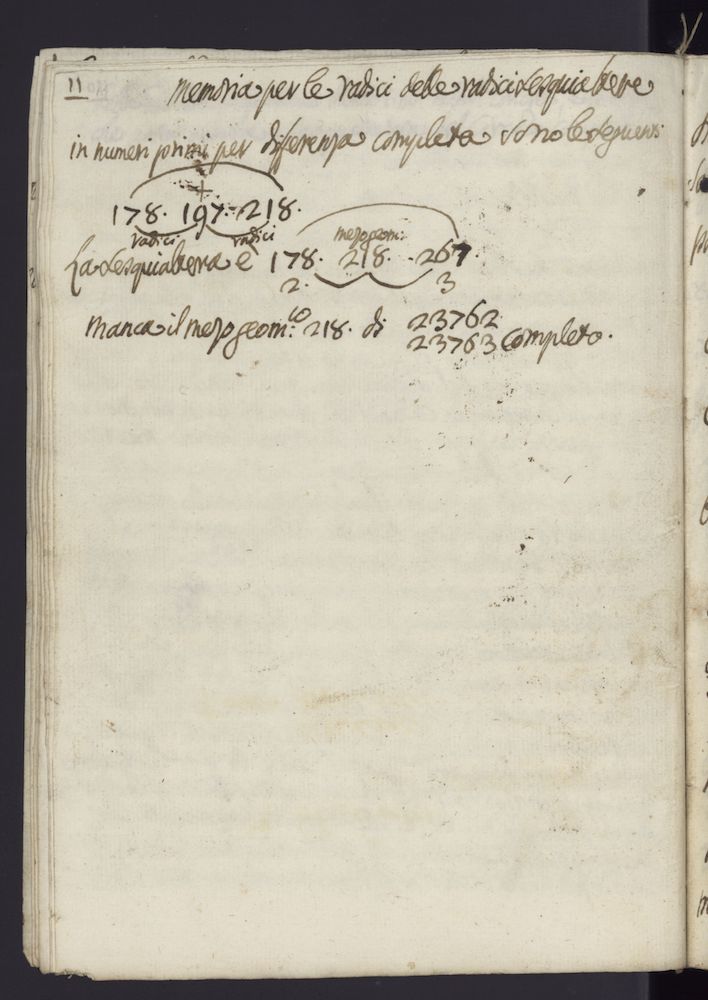 11
memoria per le radici delle radici sesquialtere
in numeri primi per diferenza completa sono le seguenti
178. 197. 218.
radici radici
mezo geom:
La sesquialtera è 178. 218. 267.
2. 3
manca il mezo geom:co 218. di 23762
23763 completo.